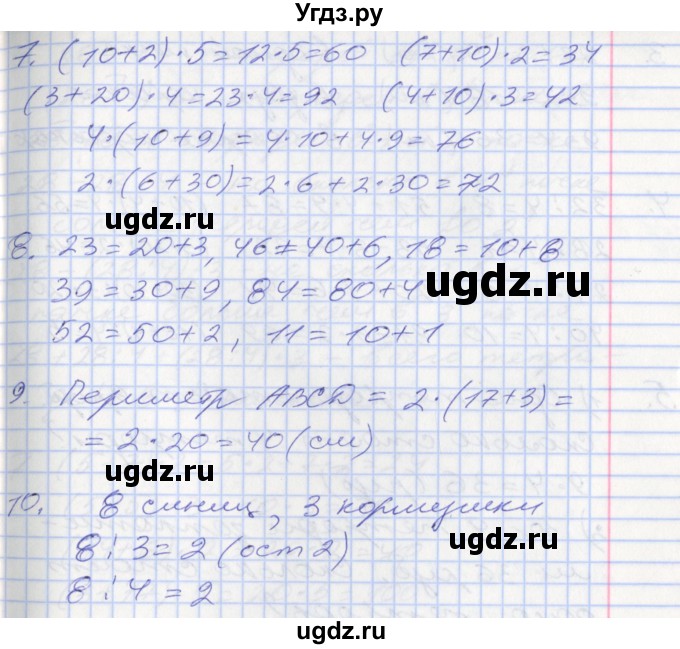 Угдз.ру
7. (10+2)·5=12·5=60 (7+10)·2=34
(3+20)·4=23·4=92 (4+10)·3=42
4·(10+9)=4·10+4·9=76
2·(6+30)=2·6+2·30=72
ugdz.ru
8. 23=20+3, 46=40+6, 18=10+8
39=30+9, 84=80+4
ugdz.ru
52=50+2, 11=10+1
9. Периметр ABCD = 2·(17+3)=
=2·20=40(см)
ugdz.ru
10. 8 синиц, 3 кормушки
8:3=2 (ост 2)
ugdz.ru
8:4=2
ugdz.ru